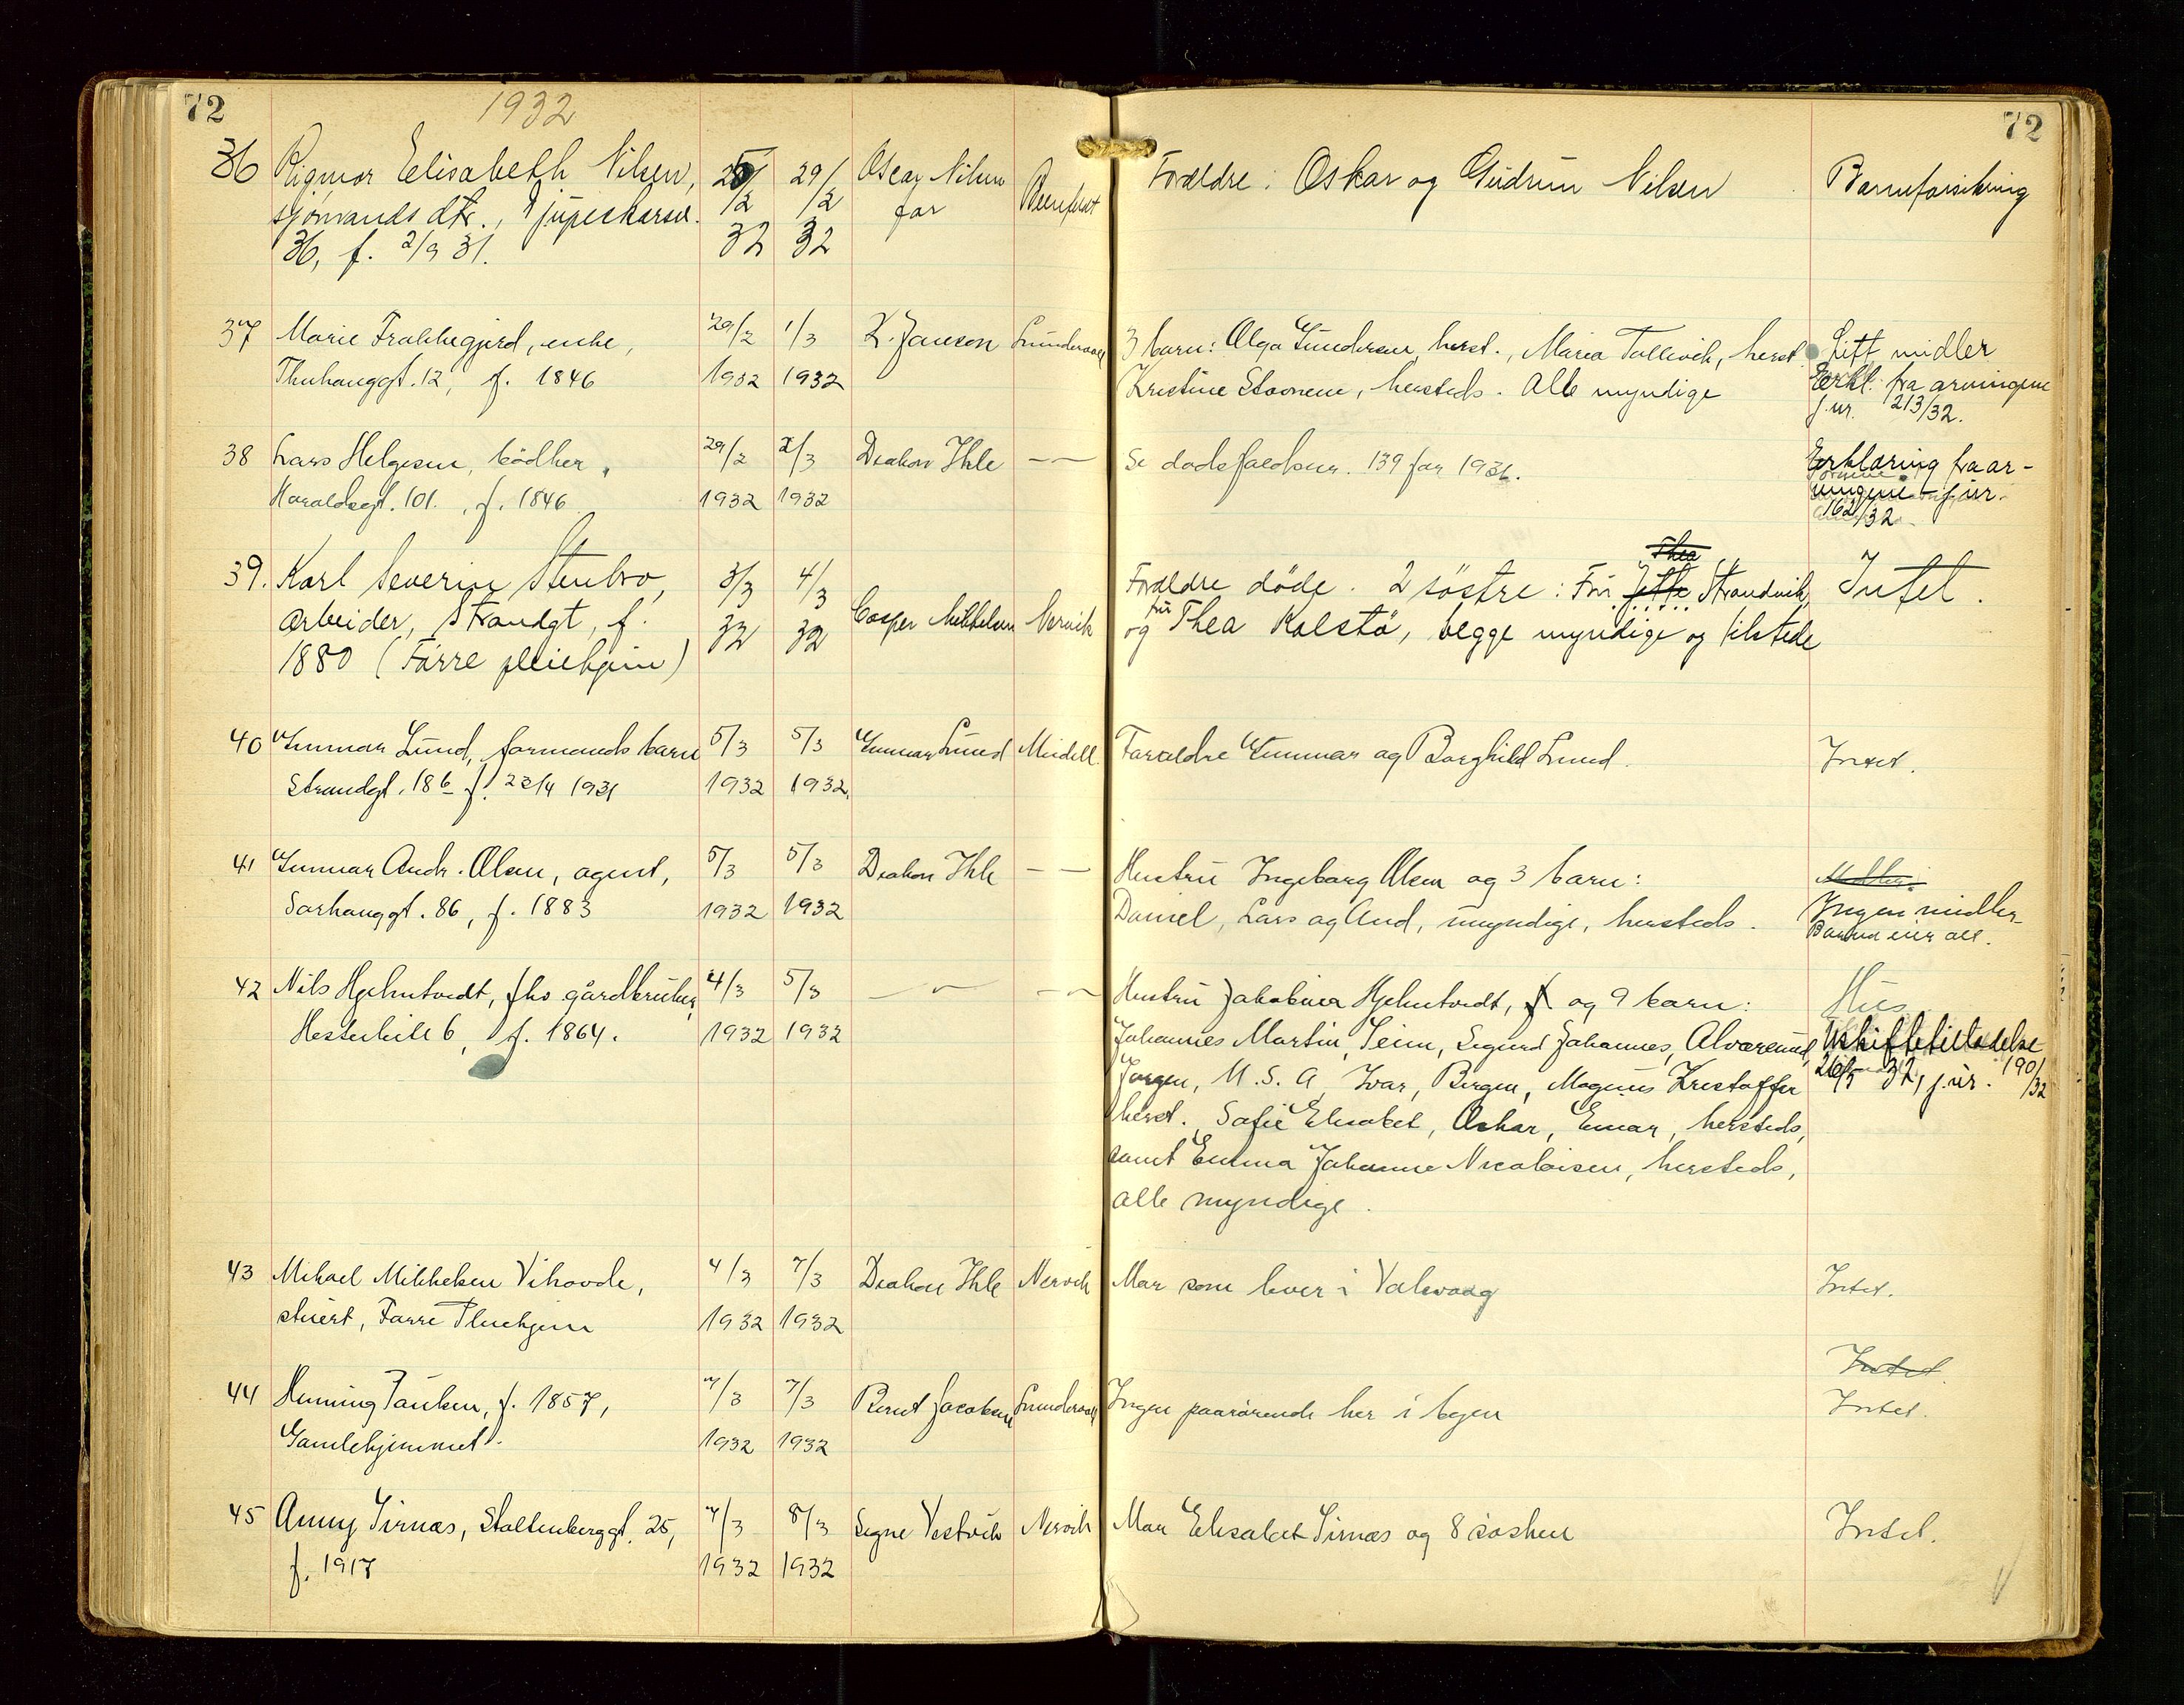 72
1932
72
36 Rigmor Elisabeth Nilsen, 25/2 32 29/2 32 Oscar Nilsen far
sjømands dtr., Djupeskarsv.
36, f. 2/9 31.
Foreldre: Oskar og Gudrun Nilsen
Barneforsikring
37 Marie Frakkegjerd, enke, 29/2 1932 1/3 1932 K. Jansen
Thuhauggt. 12, f. 1846
3 barn: Olga Gundersen, herst., Maria Tollevik, herst.
Kristine Stoonem, hersteds. Alle myndige
Litt midler
Erkl. fra arvingene
j.nr. 213/32.
38 Lars Helgesen, bødker, 29/2 1932 2/3 1932 Diakon Ihle — —
Haraldsgt. 101, f. 1846
Se dødsfaldsnr. 139 for 1931.
Erklæring fra ar-
vingene j.nr.
162/32
39. Karl Severin Stenbro, 3/3 32 4/3 32 Casper Mikkelsen Nervik
arbeider, Strandgt, f.
1880 (Førre pleiehjem)
Thea
Foreldre døde. 2 søstre: Fru Jette Strandvik,
og fru Thea Kolstø, begge myndige og tilstede
Intet.
40 Gunnar Lund, formands barn 5/3 1932 5/3 1932. Gunnar Lund Meidell
Strandgt. 186 f. 23/4 1931
Foreldre Gunnar og Borghild Lund.
Intet.
41 Gunnar Andr. Olsen, agent, 5/3 1932 5/3 1932 Diakon Ihle — —
Sørhauggt. 86, f. 1883
Hustru Ingeborg Olsen og 3 barn:
Daniel, Lars og Aud, myndige, hersteds.
Midler.
Ingen midler
Banken eier alt.
42 Nils Hjelmtvedt, fhv. gårdbruker, 4/3 1932 5/3 1932 — " — — " —
6, f. 1864.
Hustru Jakobine Hjelmtvedt, og 9 barn:
Johannes Martin, Seim, Sigurd Johannes, Alværsund,
Jørgen, U.S.A, Ivar, Bergen, Magnus Kristoffer
herst. Sofie Elisabet, Oskar, Einar, hersteds,
samt Emma Johanne Nicolaisen, hersteds,
alle myndige.
Hus
Uskiftetilladelse
26/5 32, j.nr. 190/32
43 Mikael Mikkelsen Vihovde, 4/3 1932 7/3 1932 Diakon Ihle Nervik
stuert, Førre Pleiehjem
Mor som lever i Valevaag
Intet.
44 Henning Paulsen, f. 1857, 7/3 1932 7/3 1932 Bernt Jacobsen
Gamlehjemmet.
Ingen paarørende her i byen
Intet.
Intet.
45 Anny Sirnæs, Stoltenberggt. 25, 7/3 1932 8/3 1932 Signe Vestvik Nervik
f. 1917
Mor Elisabet Sirnæs og 8 søsken
Intet.